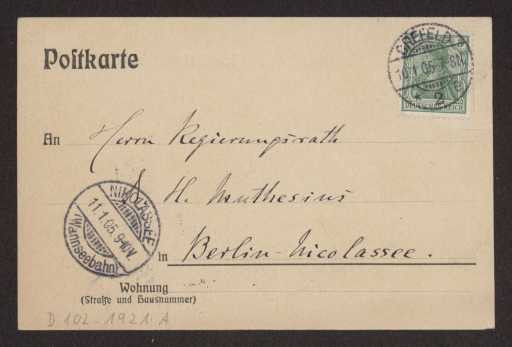 Postkarte
CREFELD
10.1.05. 7-8N.
* 2
DEUTSCHES REICH
An Herrn Regierungsrath
H. Muthesius
in Berlin-Nicolassee.
NIKOLASSEE
11.1.05. 9-10V.
(Wannseebahn)
Wohnung
(Straße und Hausnummer)
D 102-1921 A